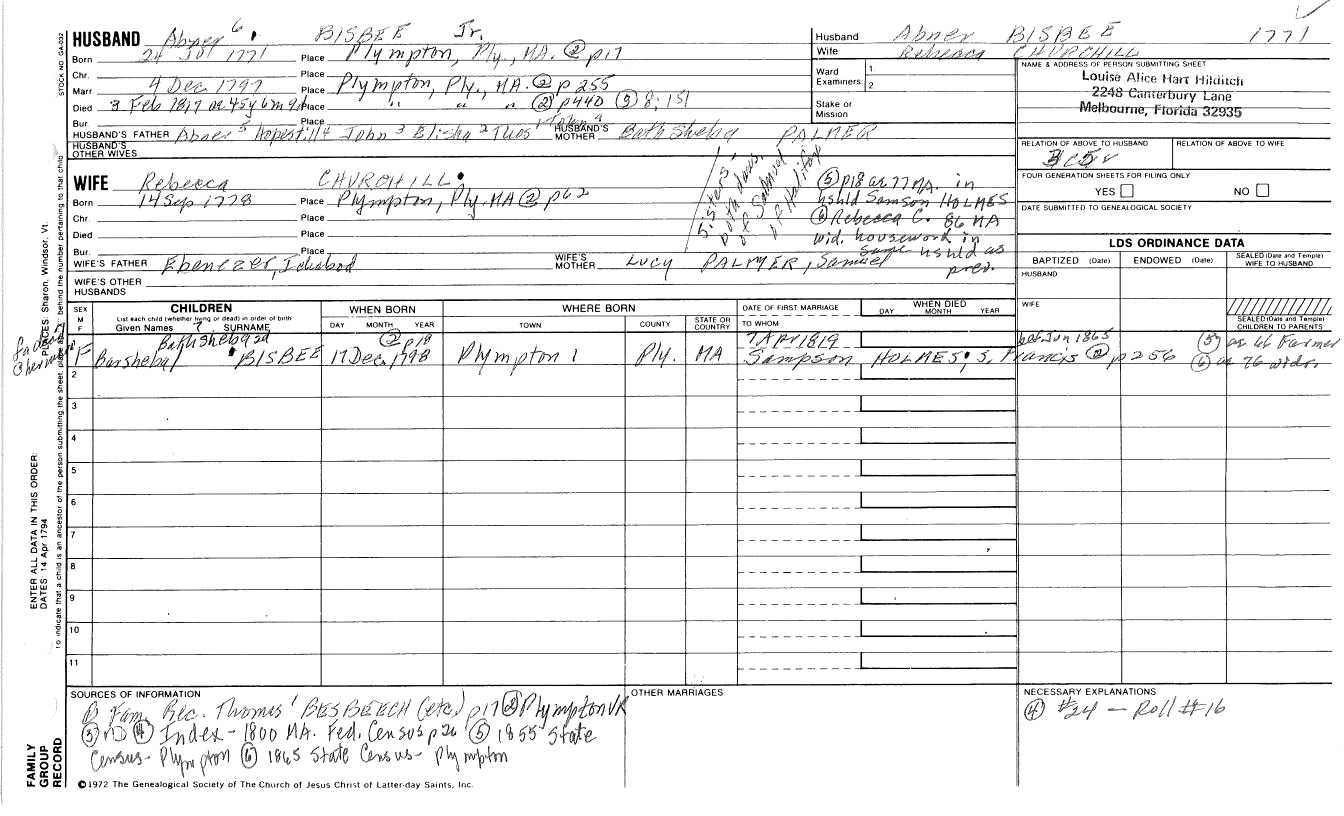 HUSBAND Abner 6 BISBEE Jr.
Born 24 1771 Place Plympton, Ply, MA. ② p17
Chr. Place
Marr 4 Dec. 1797 Place Plympton, Ply., MA. ② p 255
Died 3 Feb 1817 ae 45y 6m 9d Place " " " ② p440 ③ 8:151
Bur Place
HUSBAND'S FATHER Abner 5 Hopestill 4 John 3 Elisha 2 Thos 1
HUSBAND'S MOTHER Bathsheba PALMER
HUSBAND'S OTHER WIVES
WIFE Rebecca CHURCHILL
Born 14 Sep 1778 Place Plympton, Ply. MA ② p62
Chr. Place
Died Place
Bur. Place
WIFE'S FATHER Ebenezer, Ichabod
WIFE'S MOTHER Lucy PALMER, Samuel
WIFE'S OTHER HUSBANDS
Sisters, both daus. of Samuel of Halifax
⑤ p18 ae 77 MA. in
hshld Samson HOLMES
⑥ Rebecca C. 86 MA
wid. housework in
same hshld as
prev.
Husband Abner BISBEE 1771
Wife Rebecca CHURCHILL
Ward
Examiners: 1
2
Stake or
Mission
NAME & ADDRESS OF PERSON SUBMITTING SHEET
Louise Alice Hart Hilditch
2248 Canterbury Lane
Melbourne, Florida 32935
RELATION OF ABOVE TO HUSBAND
RELATION OF ABOVE TO WIFE
FOUR GENERATION SHEETS FOR FILING ONLY
YES NO
DATE SUBMITTED TO GENEALOGICAL SOCIETY
LDS ORDINANCE DATA
BAPTIZED (Date) ENDOWED (Date) SEALED (Date and Temple) WIFE TO HUSBAND
HUSBAND
WIFE
SEALED (Date and Temple) CHILDREN TO PARENTS
SEX
M
F
CHILDREN
List each child (whether living or dead) in order of birth
Given Names SURNAME
WHEN BORN
DAY MONTH YEAR
WHERE BORN
TOWN COUNTY STATE OR COUNTRY
DATE OF FIRST MARRIAGE
TO WHOM
WHEN DIED
DAY MONTH YEAR
Bathsheba 2d ② p18 7 Apr 1819 bef Jun 1865 ⑤ ae 66 Farmer
F Barsheba BISBEE 17 Dec. 1798 Plympton Ply. MA Sampson HOLMES; S. Francis ② p256 ⑥ ae 76 wdr.
2
3
4
5
6
7
8
9
10
11
SOURCES OF INFORMATION
Fam. Rec. Thomas' BESBEECH (etc.) p17 ② Plympton VR
③ ④ Index - 1800 MA. Fed. Census p26 ⑤ 1855 State
Census - Plympton ⑥ 1865 State Census - Plympton
OTHER MARRIAGES
NECESSARY EXPLANATIONS
④ #24 - Roll #16
©1972 The Genealogical Society of The Church of Jesus Christ of Latter-day Saints, Inc.
STOCK NO. GA-032
ENTER ALL DATA IN THIS ORDER:
DATES: 14 Apr 1794
PLACES: Sharon, Windsor, Vt.
FAMILY
GROUP
RECORD